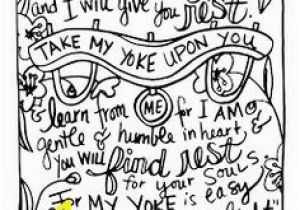 and I will give you
rest.
TAKE MY YOKE UPON YOU
& learn from ME for I AM
gentle & humble in heart,
you will find rest
for your souls.
For MY YOKE is easy